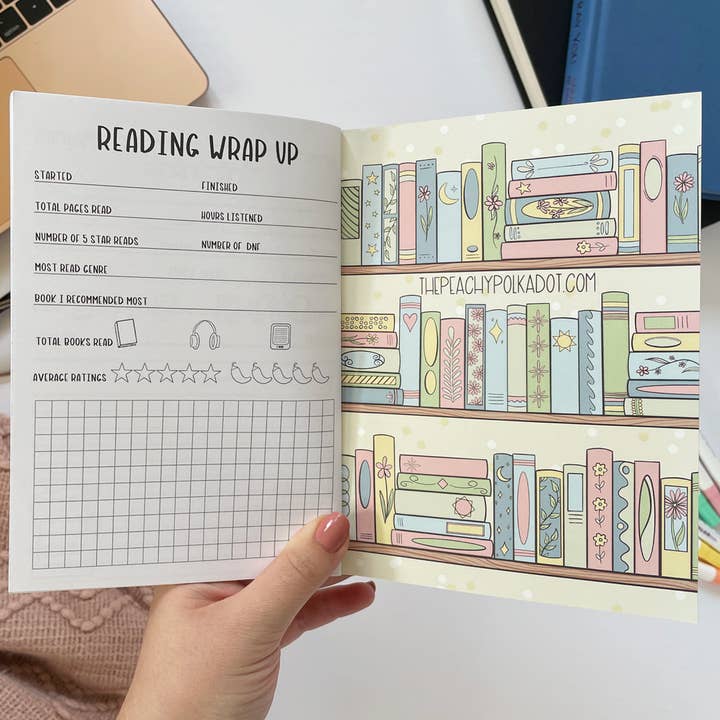 READING WRAP UP
STARTED
FINISHED
TOTAL PAGES READ
HOURS LISTENED
NUMBER OF 5 STAR READS
NUMBER OF DNF
MOST READ GENRE
BOOK I RECOMMENDED MOST
TOTAL BOOKS READ
AVERAGE RATINGS
THEPEACHYPOLKADOT.COM